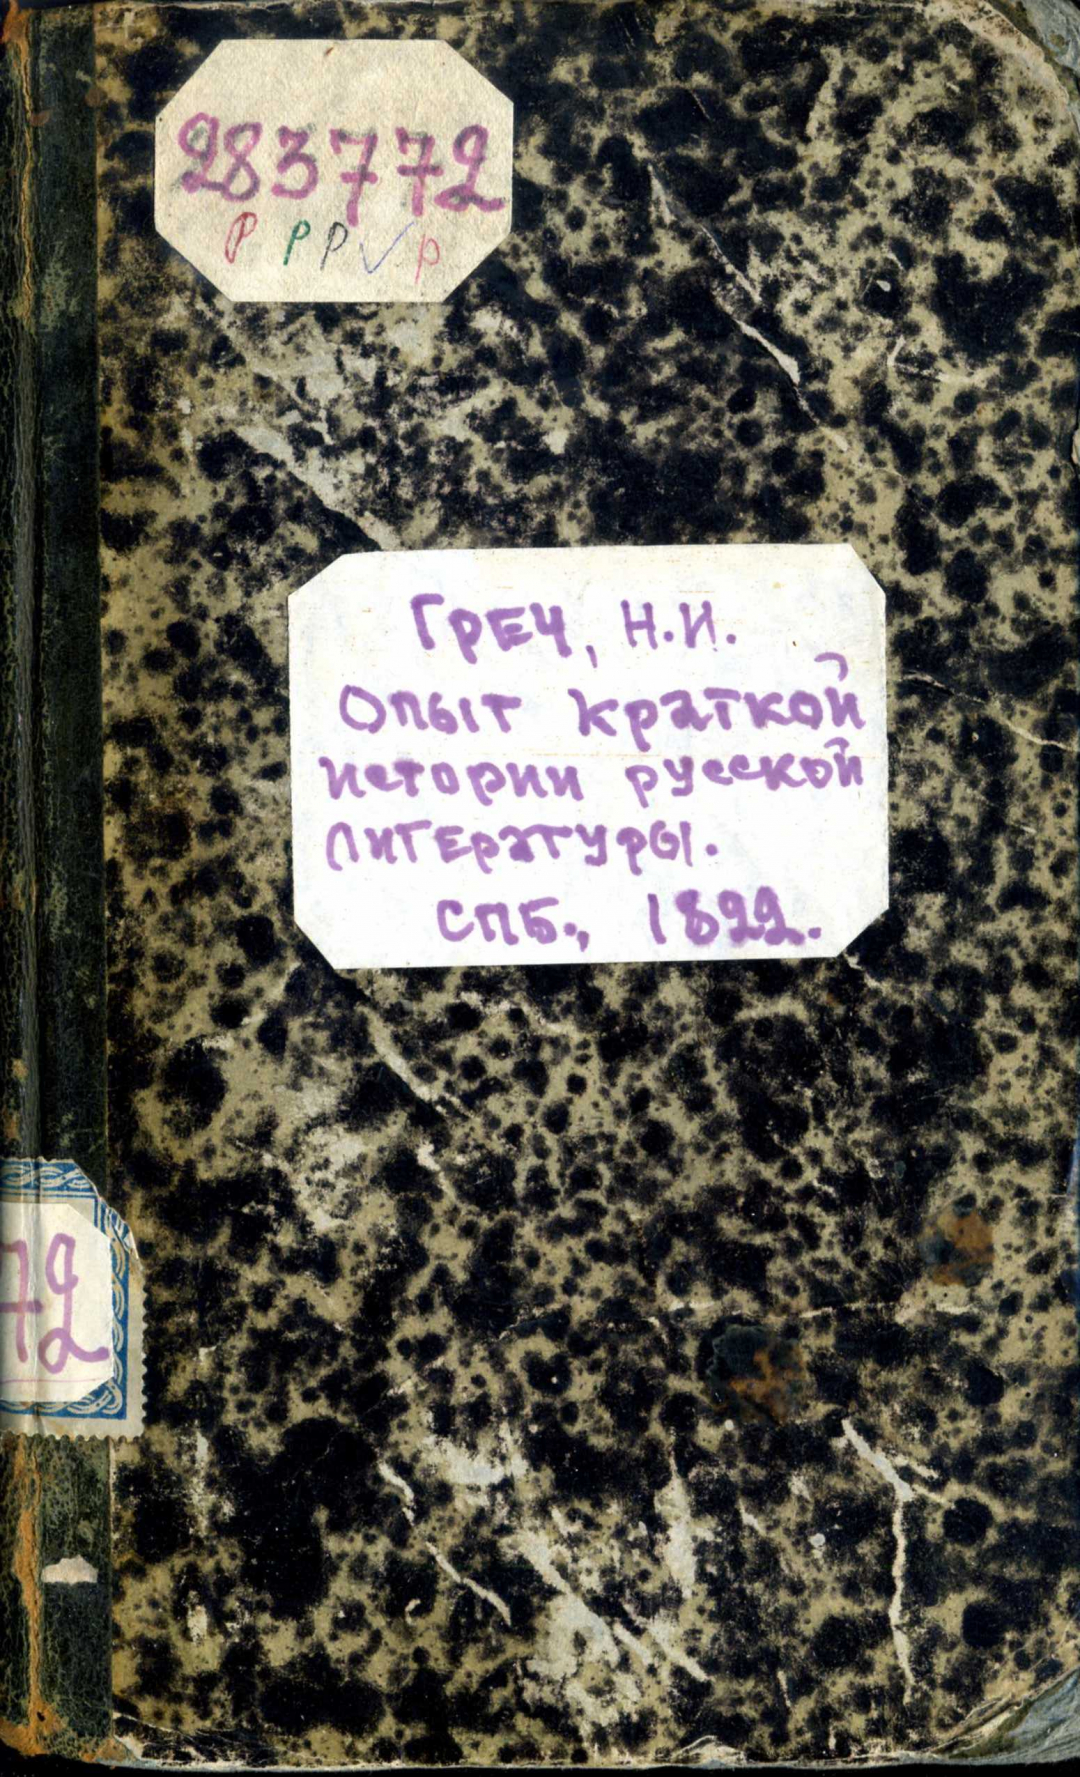 283772
Р Р Р ✓ Р
Греч, Н.И.
Опыт краткой
истории русской
литературы.
СПБ., 1822.
72